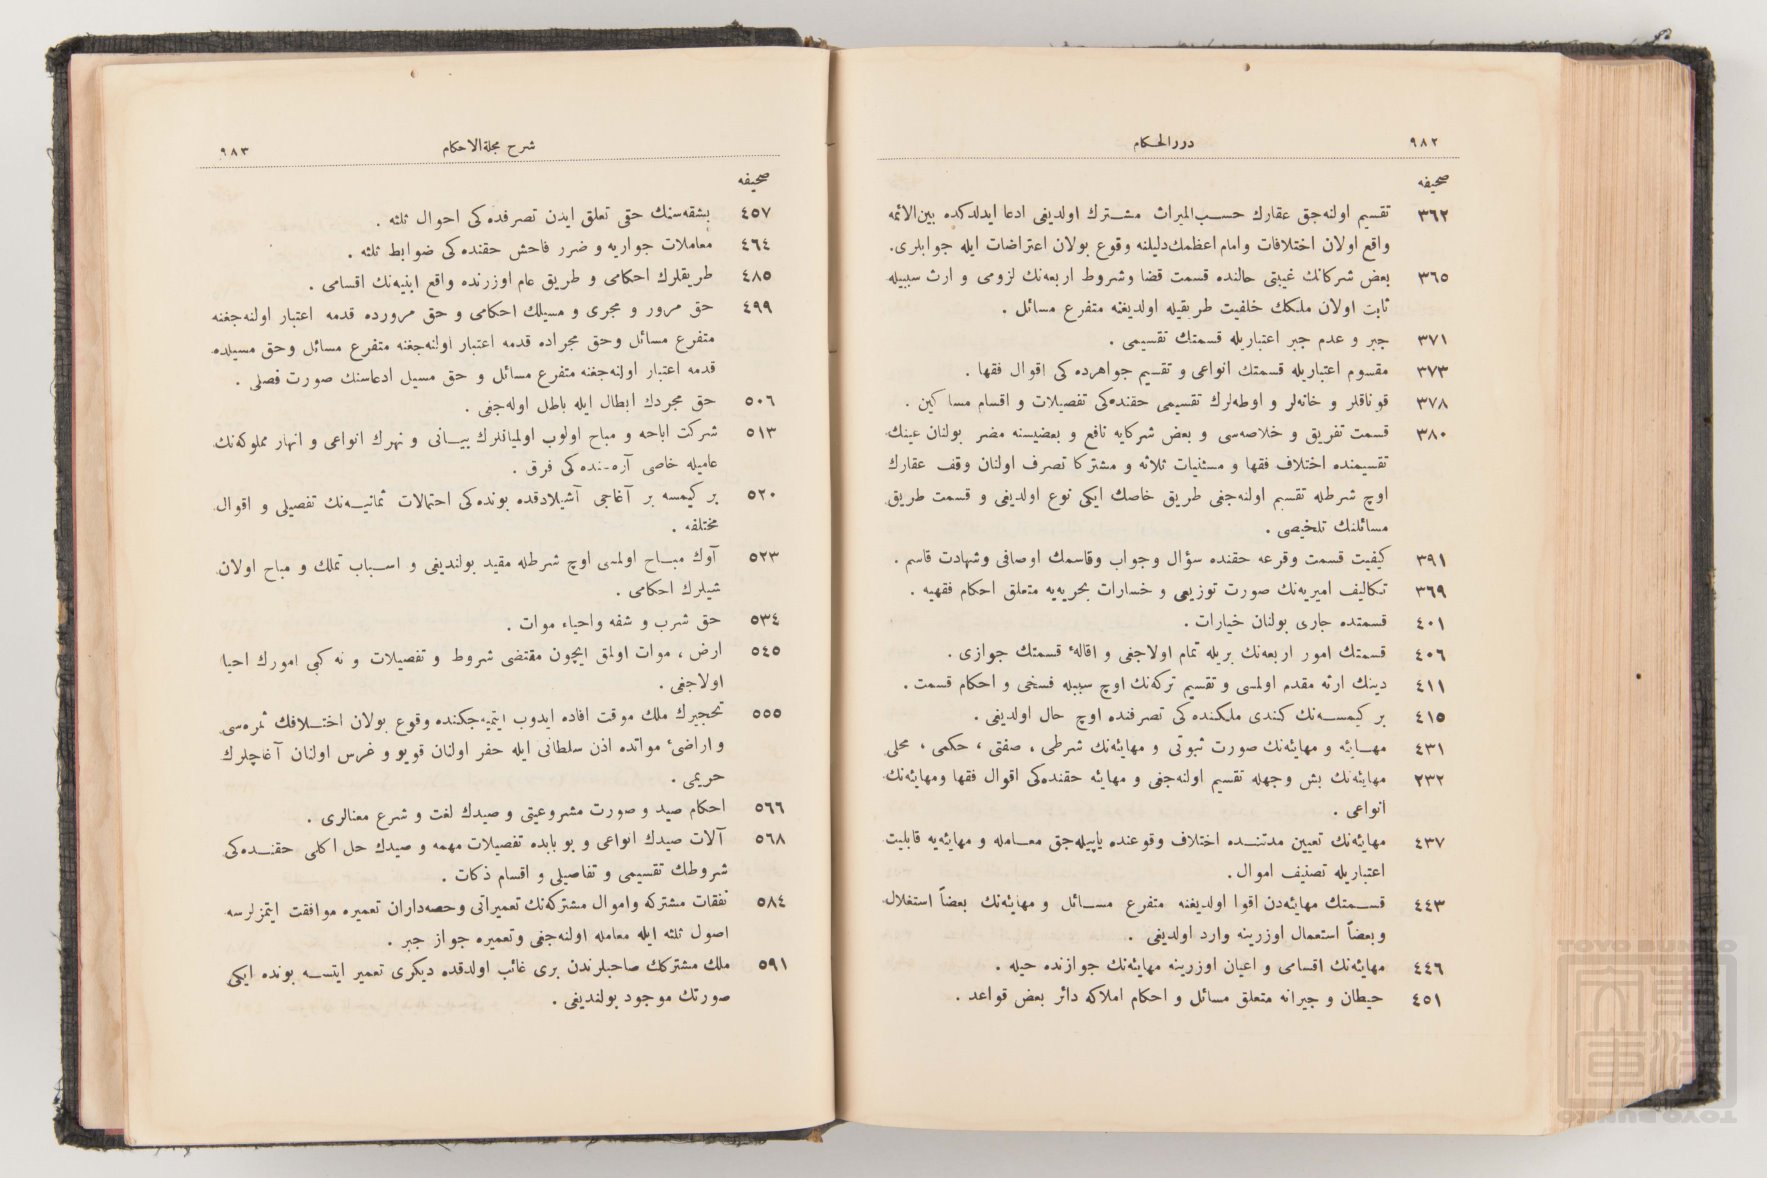 ٩٨٢
دررالحكام
صحيفه
٣٦٢ تقسيم اولنه‌جق عقارك حسب‌الميراث مشترك اولديغی ادعا ايدلدكده بين‌الائمه
واقع اولان اختلافات وامام اعظمك دليلنه وقوع بولان اعتراضات ايله جوابلری.
٣٦٥ بعض شركانك غيبتی حالنده قسمت قضا وشروط اربعه‌نك لزومی و ارث سببيله
ثابت اولان ملكك خلفيت طريقيله اولديغنه متفرع مسائل .
٣٧١ جبر و عدم جبر اعتباريله قسمتك تقسيمی .
٣٧٣ مقسوم اعتباريله قسمتك انواعی و تقسيم جواهرده‌كی اقوال فقها .
٣٧٨ قوناقلر و خانه‌لر و اوطه‌لرك تقسيمی حقنده‌كی تفصيلات و اقسام مساكين .
٣٨٠ قسمت تفريق و خلاصه‌سی و بعض شركايه نافع و بعضيسنه مضر بولنان عينك
تقسيمنده اختلاف فقها و مسئنيات ثلاثه و مشتركا تصرف اولنان وقف عقارك
اوچ شرطله تقسيم اولنه‌جغی طريق خاصك ايكی نوع اولديغی و قسمت طريق
مسائلنك تلخيصی .
٣٩١ كيفيت قسمت وقرعه حقنده سؤال وجواب وقاسمك اوصافی وشهادت قاسم .
٣٦٩ تكاليف اميريه‌نك صورت توزيعی و خسارات بحريه‌يه متعلق احكام فقهيه .
٤٠١ قسمتده جاری بولنان خيارات .
٤٠٦ قسمتك امور اربعه‌نك بريله تمام اولاجغی و اقالهٔ قسمتك جوازی .
٤١١ دينك ارثه مقدم اولمسی و تقسيم تركه‌نك اوچ سببله فسخی و احكام قسمت .
٤١٥ بر كيمسه‌نك كندی ملكنده‌كی تصرفنده اوچ حال اولديغی .
٤٣١ مهايئه و مهايئه‌نك صورت ثبوتی و مهايئه‌نك شرطی ، صفتی ، حكمی ، محلی
٢٣٢ مهايئه‌نك بش وجهله تقسيم اولنه‌جغی و مهايئه حقنده‌كی اقوال فقها ومهايئه‌نك
انواعی .
٤٣٧ مهايئه‌نك تعيين مدتنده اختلاف وقوعنده ياپيله‌جق معامله و مهايئه‌يه قابليت
اعتباريله تصنيف اموال .
٤٤٣ قسمتك مهايئه‌دن اقوا اولديغنه متفرع مسائل و مهايئه‌نك بعضاً استغلال
وبعضاً استعمال اوزرينه وارد اولديغی .
٤٤٦ مهايئه‌نك اقسامی و اعيان اوزرينه مهايئه‌نك جوازنده حيله .
٤٥١ حيطان و جيرانه متعلق مسائل و احكام املاكه دائر بعض قواعد .
شرح مجلةالاحكام
٩٨٣
صحيفه
٤٥٧ بشقه‌سنك حقی تعلق ايدن تصرفده‌كی احوال ثلثه .
٤٦٤ معاملات جواريه و ضرر فاحش حقنده‌كی ضوابط ثلثه .
٤٨٥ طريقلرك احكامی و طريق عام اوزرنده واقع ابنيه‌نك اقسامی .
٤٩٩ حق مرور و مجری و مسيلك احكامی و حق مرورده قدمه اعتبار اولنه‌جغنه
متفرع مسائل وحق مجراده قدمه اعتبار اولنه‌جغنه متفرع مسائل وحق مسيلده
قدمه اعتبار اولنه‌جغنه متفرع مسائل و حق مسيل ادعاسنك صورت فصلی .
٥٠٦ حق مجردك ابطال ايله باطل اوله‌جغی .
٥١٣ شركت اباحه و مباح اولوب اولميانلرك بيانی و نهرك انواعی و انهار مملوكه‌نك
عاميله خاصی آره‌سنده‌كی فرق .
٥٢٠ بر كيمسه بر آغاجی آشيلادقده بونده‌كی احتمالات ثمانيه‌نك تفصيلی و اقوال
مختلفه .
٥٢٣ آوك مباح اولمسی اوچ شرطله مقيد بولنديغی و اسباب تملك و مباح اولان
شيلرك احكامی .
٥٣٤ حق شرب و شفه واحياء موات .
٥٤٥ ارض ، موات اولمق ايچون مقتضی شروط و تفصيلات و نه كبی امورك احيا
اولاجغی .
٥٥٥ تحجيرك ملك موقت افاده ايدوب ايتميه‌جكنده وقوع بولان اختلافك ثمره‌سی
و اراضیٔ مواتده اذن سلطانی ايله حفر اولنان قويو و غرس اولنان آغاچلرك
حريمی .
٥٦٦ احكام صيد و صورت مشروعيتی و صيدك لغت و شرع معنالری .
٥٦٨ آلات صيدك انواعی و بو بابده تفصيلات مهمه و صيدك حل اكلی حقنده‌كی
شروطك تقسيمی و تفاصيلی و اقسام ذكات .
٥٨٤ نفقات مشتركه واموال مشتركه‌نك تعميراتی وحصه‌داران تعميره موافقت ايتمزلرسه
اصول ثلثه ايله معامله اولنه‌جغی وتعميره جواز جبر .
٥٩١ ملك مشتركك صاحبلرندن بری غائب اولدقده ديكری تعمير ايتسه بونده ايكی
صورتك موجود بولنديغی .
TOYO BUNKO